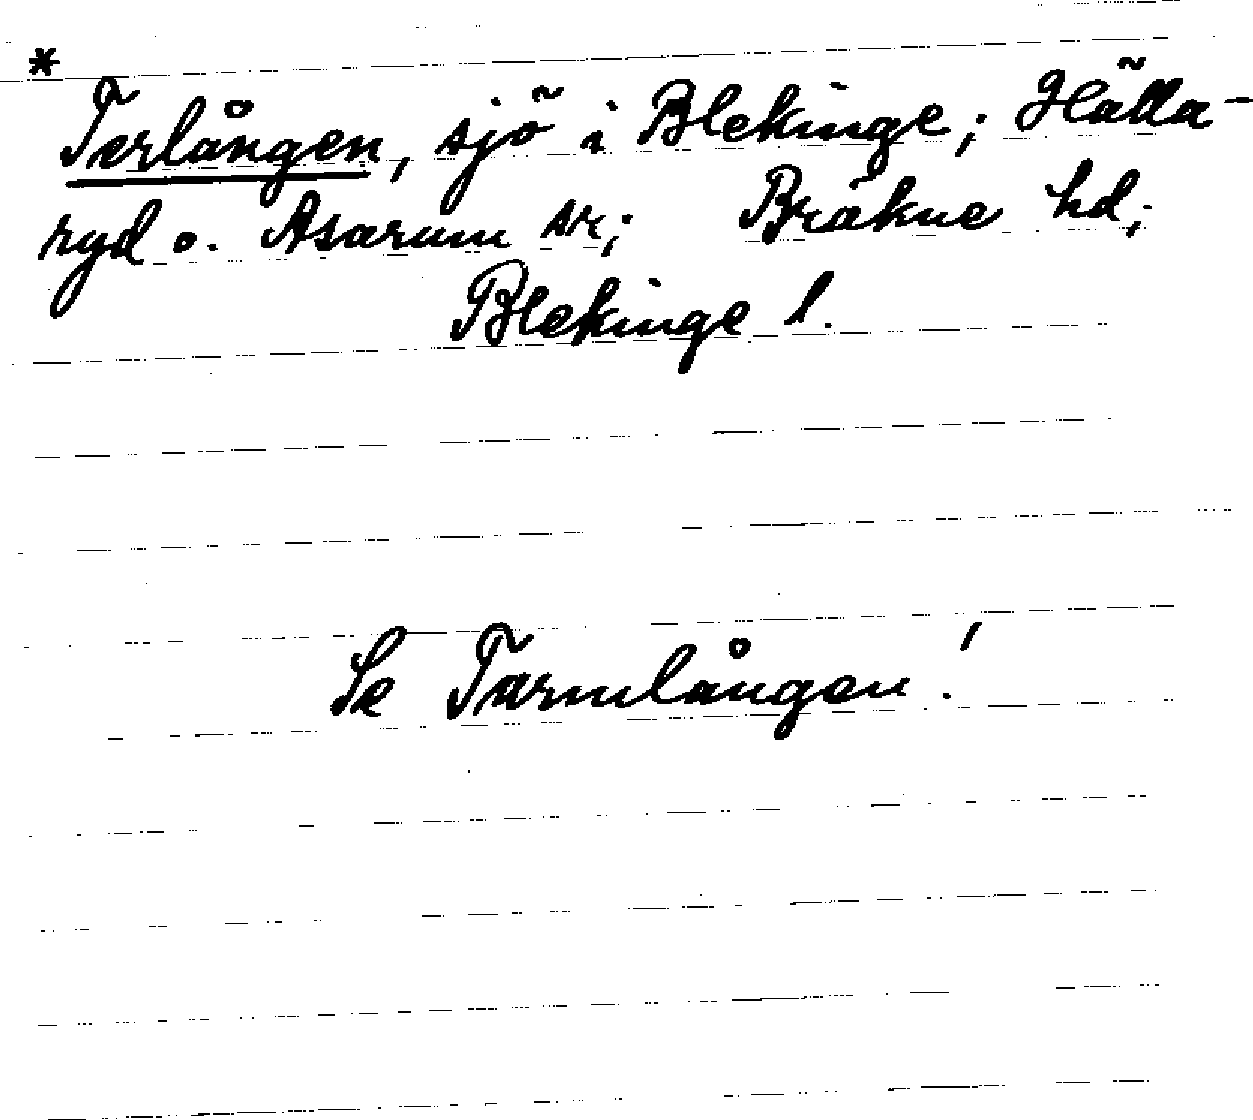 *
Terlången, sjö i Blekinge; Hälla-
ryd o. Asarum sn; Bräkne hd;
Blekinge l.
Se Tarmlången!